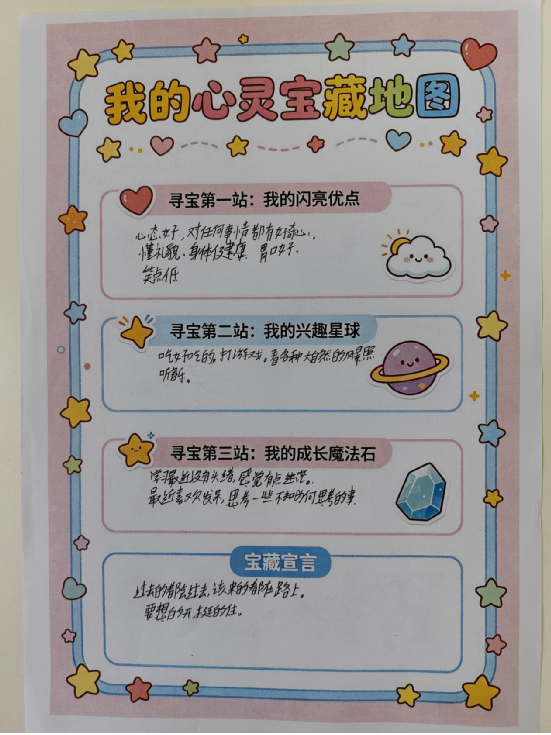 我的心灵宝藏地图
寻宝第一站：我的闪亮优点
心态好，对任何事情都有好奇心，
懂礼貌，身体健康，胃口好。
笑点低
寻宝第二站：我的兴趣星球
吃好吃的，打游戏。看各种大自然的风景照
听音乐。
寻宝第三站：我的成长魔法石
学习最近没有头绪，感觉有点迷茫。
最近喜欢发呆，思考一些不知如何思考的事。
宝藏宣言
过去的都会过去，该来的都在路上。
要想的开，挺的住。